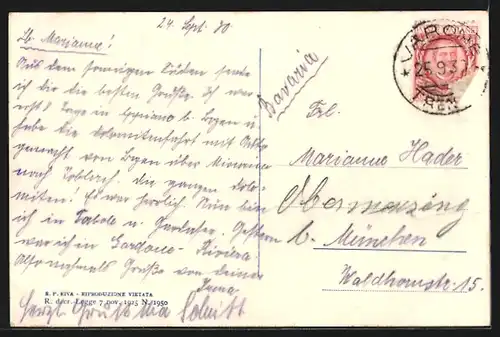 24. Sept. 30
Lb. Marianne!
Aus dem sonnigen Süden sende
ich dir die besten Grüße. Ich war
erst 8 Tage in Eppiano b. Bozen u.
habe die Dolomitenfahrt mit
gemacht von Bozen über
nach Toblach. die ganzen Dolo-
miten! Es war herrlich. Nun bin
ich in Torbole u. Gestern
war ich in Gardone - Riviera
Also nochmals Grüße von deiner
Irma
Herzl. Gruß
Schmitt
S. P. RIVA - RIPRODUZIONE VIETATA
R. decr.-Legge 7 nov. 1925 N. 1950
Bavaria
Frl.
Marianne Hader
Obermenzing
b. München
Waldhornstr. 15.
VARONE
25.9.3
TREN